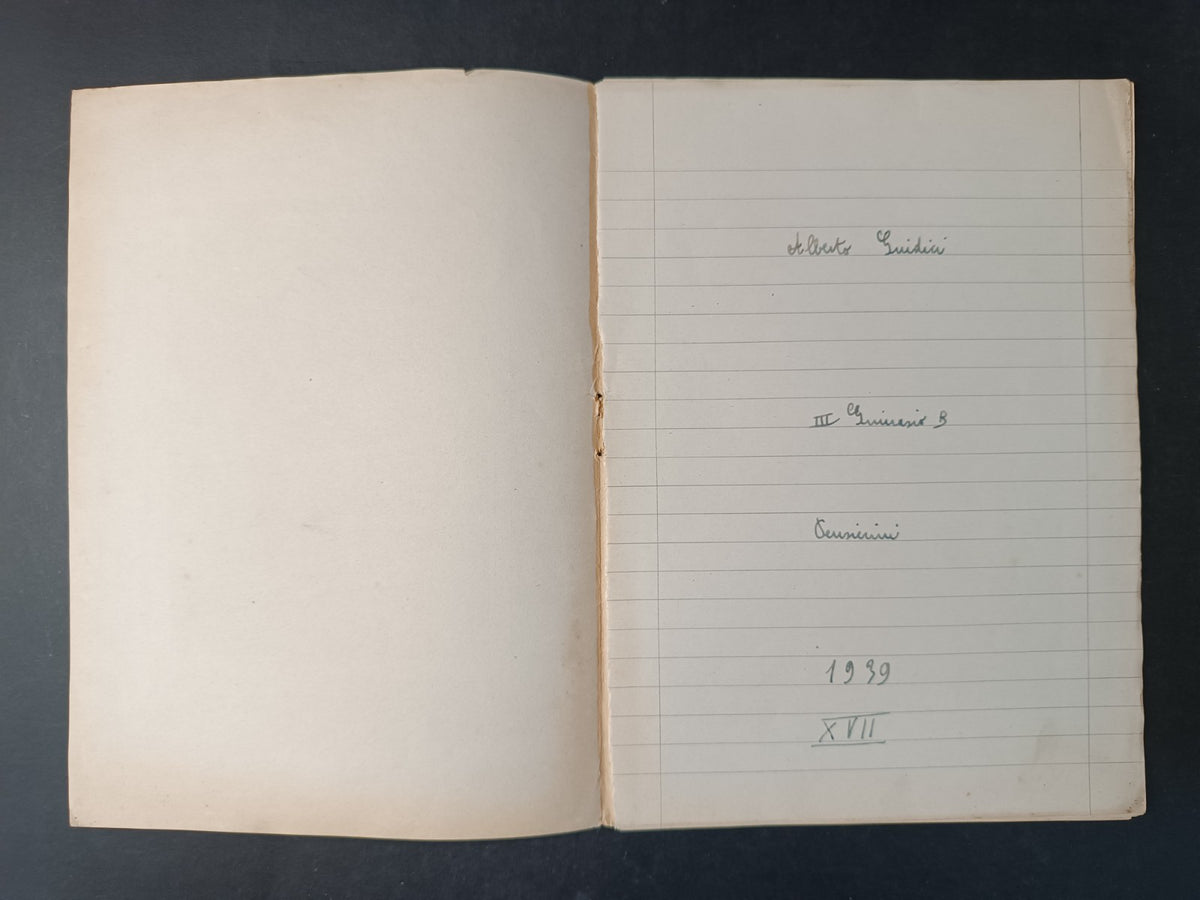 Alberto Guidici
III Ginnasio B
Pensierini
1939
XVII